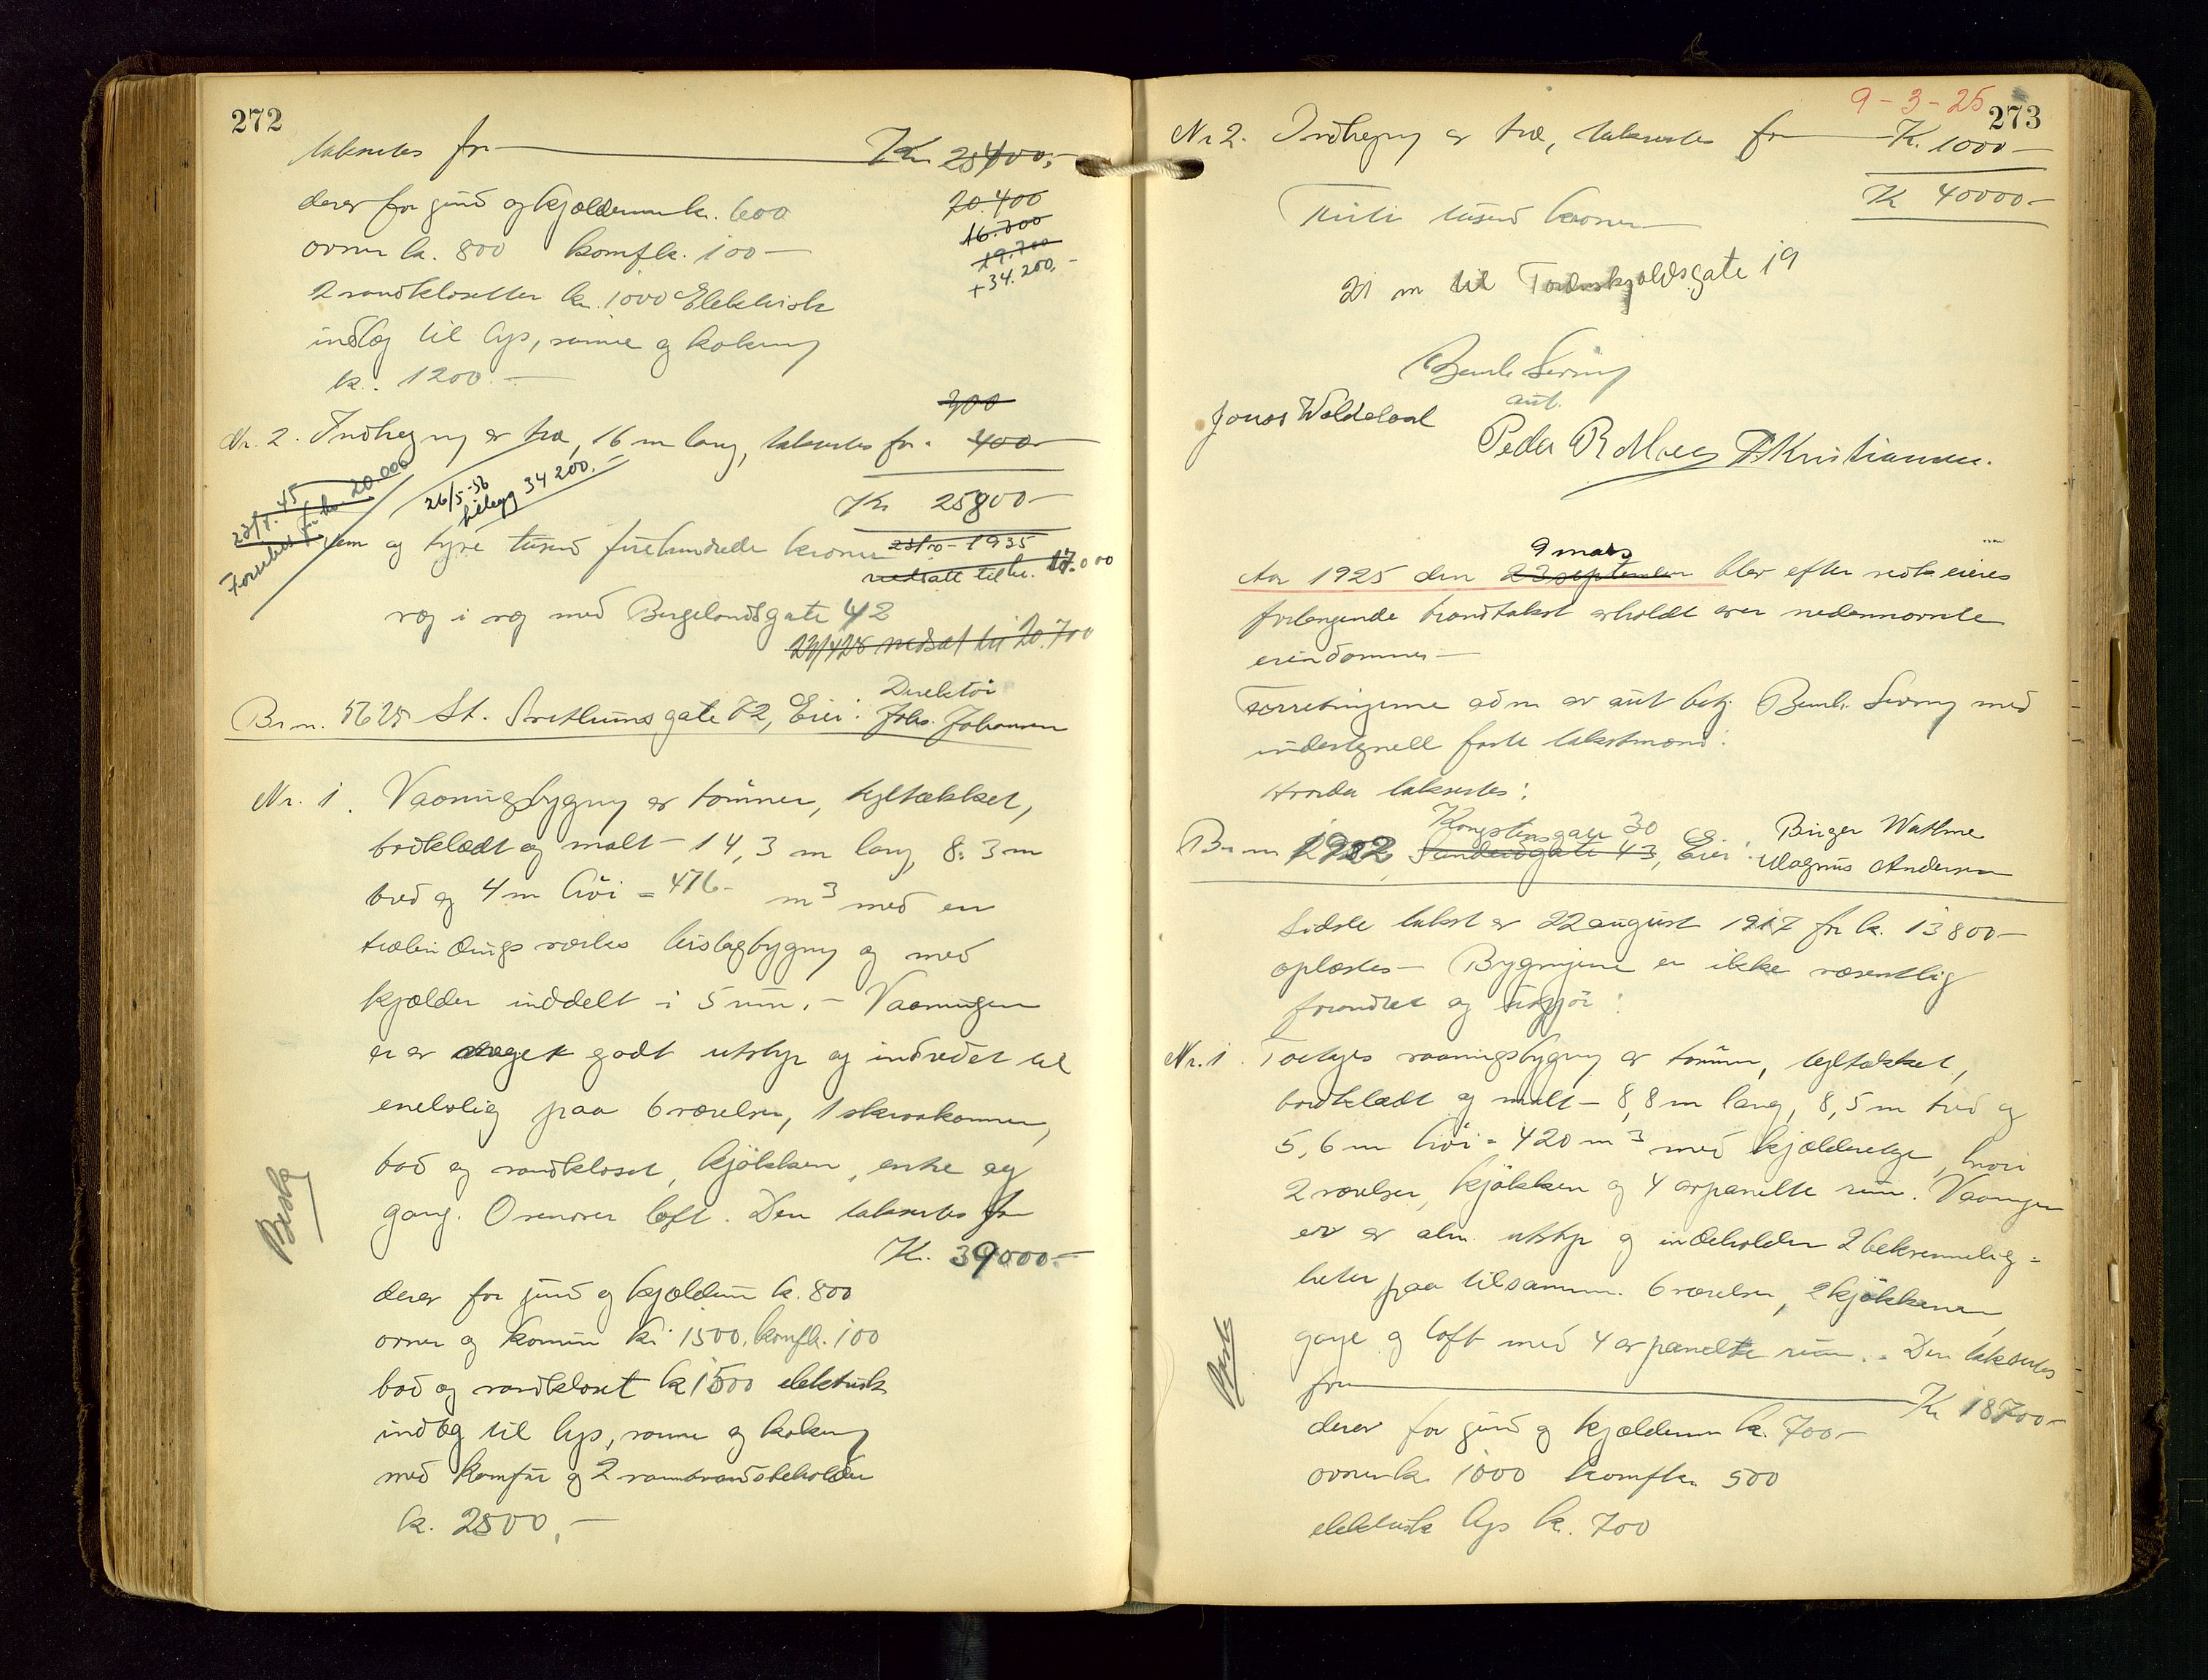 272
takseres for Kr 25400,-
derav for grund og kjælderrum kr. 600
20.400
16.700
19.700
+34.200,-
ovner kr. 800 komf kr. 100 -
2 vandklosetter kr. 1000 Elektrisk
indlæg til lys, varme og kokning
kr. 1200.-
300
Nr. 2. Indhegning av træ, 16 m lang, takseres for. 400-
26/5-56
tillegg 34 200.-
Kr 25800-
fem og tyve tusend kroner
23/10-1935
nedsatt til kr. 17.000
væg i væg med Bergelandsgate 42
23/4 28 nedsat til 20.700
Br. n. 5625 St. Svithunsgate 72, Eier: Direktør
Johs. Johansen
Nr. 1. Vaaningsbygning av tømmer, tegltækket,
bordklædt og malt - 14,3 m lang, 8,3 m
bred og 4 m høi = 476 - m³ med en
trælindings bislagbygning og med
kjælder inddelt i 5 rum. - Vaaningen
er av meget godt utstyr og indredet til
enebolig paa 6 værelser, 1 skraakammer,
bad og vandkloset, kjøkken, entre og
gang. Ovenover loft. Den takseres for
Kr. 39000.-
derav for grund og kjælderrum kr. 800
ovner og kamin kr. 1500. komf kr. 100
bad og vandkloset kr 1500 elektrisk
indlæg til lys, varme og kokning
med komfur og 2 varmtvandsbeholder
kr. 2500,-
Besig
9-3-25
273
Nr 2. Indhegning av træ, takseres for Kr. 1000-
Kr 40000-
Firti tusend kroner
21 m til Tordenskjoldsgate 19
Bernh. Sening
aut.
Jonas Waldeland
Peder R. Moe
Kristiansen.
9 mars
Aar 1925 den 23 september blev efter vedk eieres
forlangende brandtakst avholdt over nedennævnte
eiendommer -
Forretningerne adm. av aut. betj. Bernh. Sening med
undertegnede faste takstmænd:
Hvorda takseres:
Kongstensgate 30
Br n 1922, Sandeidgate 43, Eier: Birger Wathne
Magnus Andersen
Sidste takst av 22 august 1917 for kr. 13800-
oplæstes - Bygningene er ikke væsentlig
forandret og utgjør:
Nr. 1. Toetages vaaningsbygning av tømmer, tegltækket,
bordklædt og malt - 8,8 m lang, 8,5 m bred og
5,6 m høi = 420 m³ med kjælderetage, hvori
2 værelser, kjøkken og 4 avpanelte rum. Vaaningen
er av alm. utstyr og indeholder 2 bekvemmelig=
heter paa tilsammen. 6 værelser, 2 kjøkkener,
gange og loft med 4 avpanelte rum. - Den takseres
for Kr 18700-
derav for grund og kjælderrum kr. 700-
ovner kr. 1000 komf kr. 500
elektrisk lys kr. 700
Besig